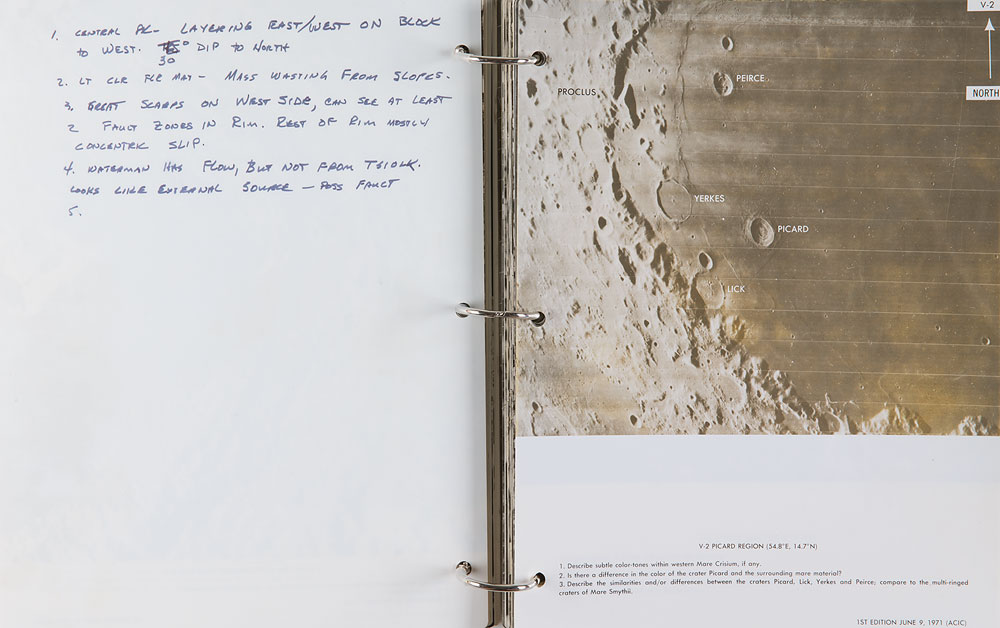 1. CENTRAL PK- LAYERING EAST/WEST ON BLOCK
to WEST. 30° DIP to NORTH
2. LT CLR FLR MAT - MASS WASTING FROM SLOPES.
3. GREAT SCARPS ON WEST SIDE, CAN SEE AT LEAST
2 FAULT ZONES IN RIM. REST OF RIM MOSTLY
CONCENTRIC SLIP.
4. WATERMAN HAS FLOW, BUT NOT FROM TSIOLK.
LOOKS LIKE EXTERNAL SOURCE - POSS FAULT
5.
V-2
NORTH
PEIRCE
PROCLUS
YERKES
PICARD
LICK
V-2 PICARD REGION (54.8°E, 14.7°N)
1. Describe subtle color-tones within western Mare Crisium, if any.
2. Is there a difference in the color of the crater Picard and the surrounding mare material?
3. Describe the similarities and/or differences between the craters Picard, Lick, Yerkes and Peirce; compare to the multi-ringed
craters of Mare Smythii.
1ST EDITION JUNE 9, 1971 (ACIC)